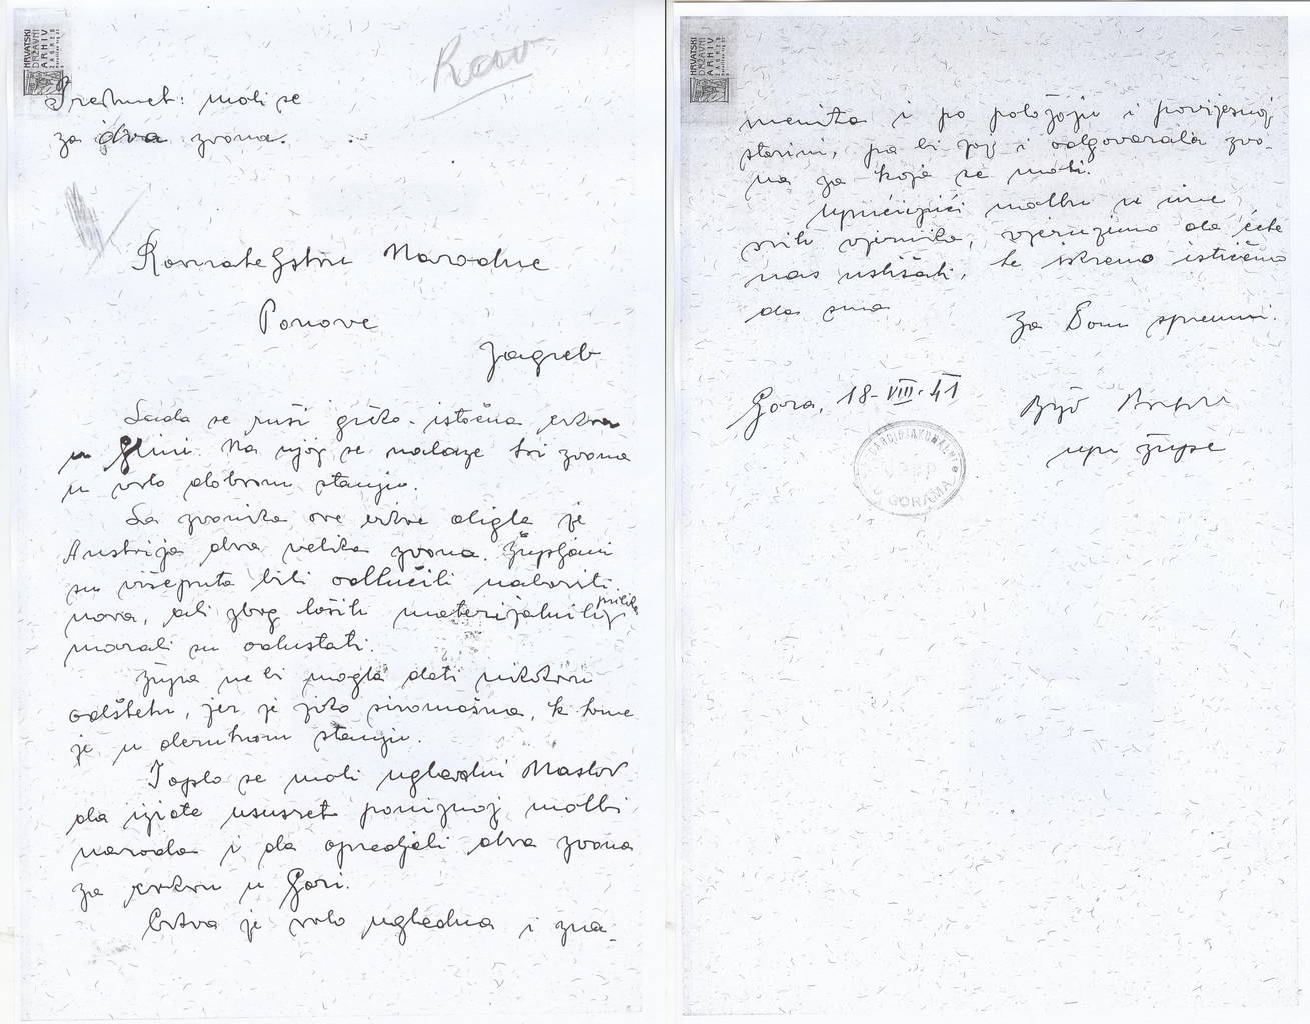 HRVATSKI
DRŽAVNI
ARHIV
ZAGREB
Predmet: moli se
za dva zvona.
Ravnateljstvu Narodne
Ponove
Zagreb
Sada se ruši grčko-istočna crkva
u Glini. Na njoj se nalaze tri zvona
u vrlo dobrom stanju.
Sa zvonika ove crkve digla je
Austrija dva velika zvona. Župljani
su višeputa bili odlučili nabaviti
nova, ali zbog loših materijalnih prilika
morali su odustati.
Župa ne bi mogla dati nikakvu
odštetu, jer je jako siromašna, k tome
je u derutnom stanju.
Toplo se moli ugledni Naslov
da izide ususret poniznoj molbi
naroda i da opredjeli dva zvona
za crkvu u Gori.
Crkva je vrlo ugledna i zna-
HRVATSKI
DRŽAVNI
ARHIV
ZAGREB
menita i po položaju i povijesnoj
starini, pa bi joj i odgovarala zvo-
na za koja se moli.
Upućujući molbu u ime
svih vjernika, vjerujemo da ćete
nas uslišati, te iskreno ističemo
da smo
Za Dom spremni.
Gora, 18-VIII-41
upr župe
GORAMA